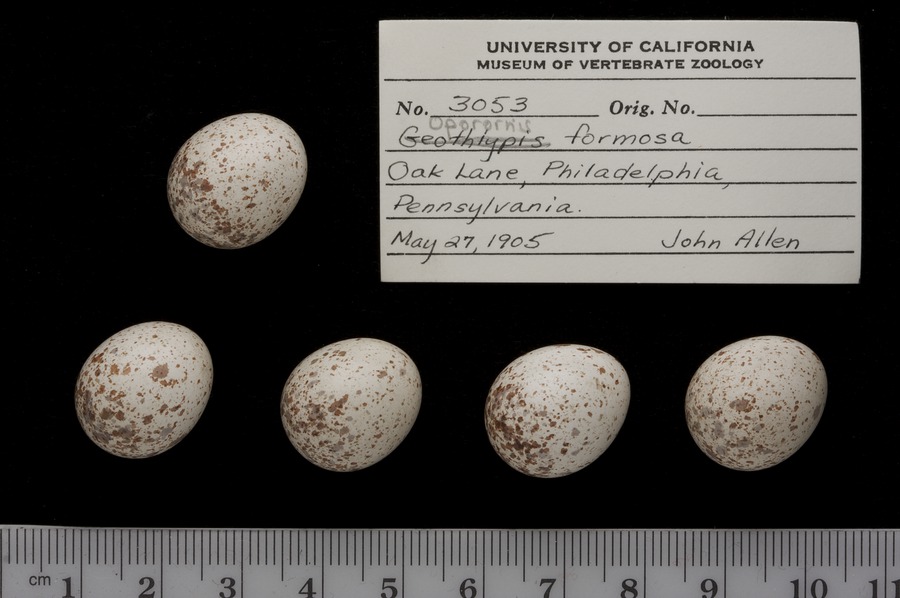 UNIVERSITY OF CALIFORNIA
MUSEUM OF VERTEBRATE ZOOLOGY
No. 3053 Orig. No.
Oporornis
Geothlypis formosa
Oak Lane, Philadelphia,
Pennsylvania.
May 27, 1905 John Allen
cm 1 2 3 4 5 6 7 8 9 10 11